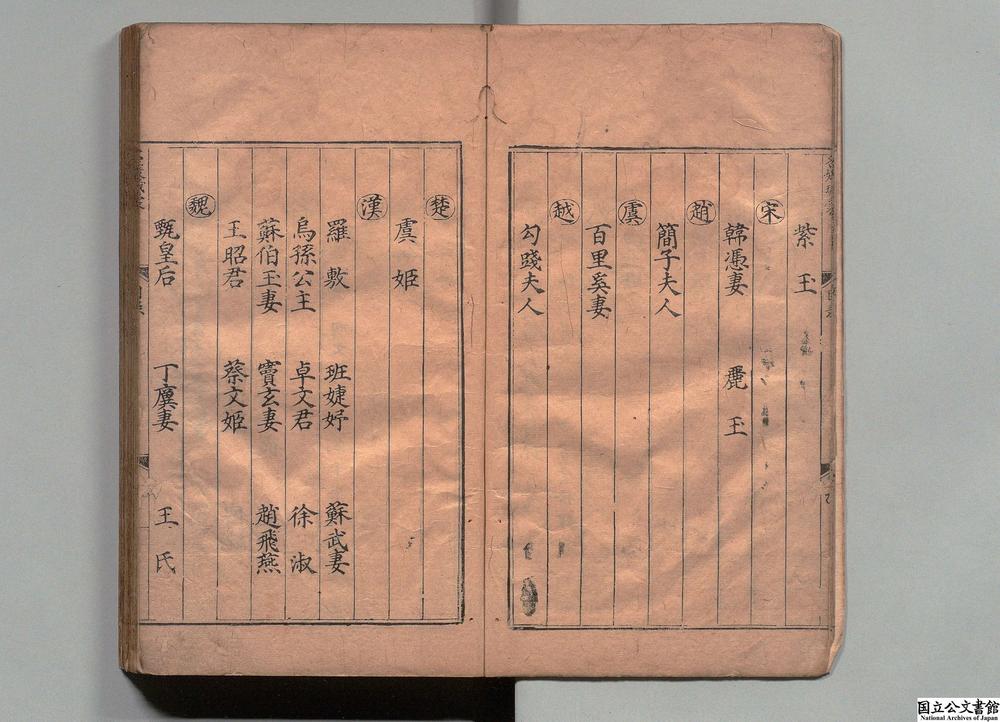 紫玉
宋
韓憑妻 麗玉
趙
簡子夫人
虞
百里奚妻
越
勾踐夫人
楚
虞姬
漢
羅敷 班婕妤 蘇武妻
烏孫公主 卓文君 徐淑
蘇伯玉妻 竇玄妻 趙飛燕
王昭君 蔡文姬
魏
甄皇后 丁廙妻 王氏
国立公文書館
National Archives of Japan